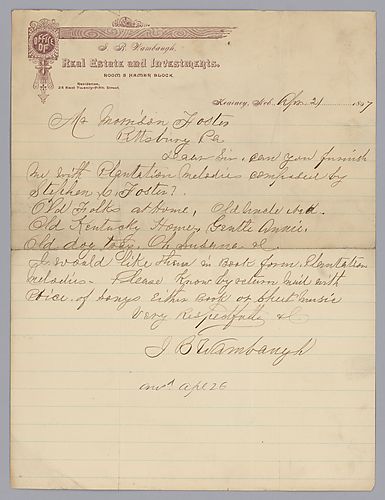 OFFICE OF
J. B. Wambaugh,
Real Estate and Investments.
ROOM 5 HAMER BLOCK.
Residence,
25 East Twenty-Fifth Street.
Kearney, Neb. Apr 21 1897
Mr Morrison Foster
Pittsburg Pa
Dear Sir, can you furnish
me with Plantation melodies composed by
Stephen C. Foster?
Old Folks at home, Old Uncle Ned.
Old Kentucky Home, Gentle Annie,
Old dog tray, Oh Susanna &.
I would like them in Book form. Plantation
Melodies - Please Know by return mail with
Price of songs Either Book or Sheet music
Very Respectfully &c
J B Wambaugh
ansd Apl 26